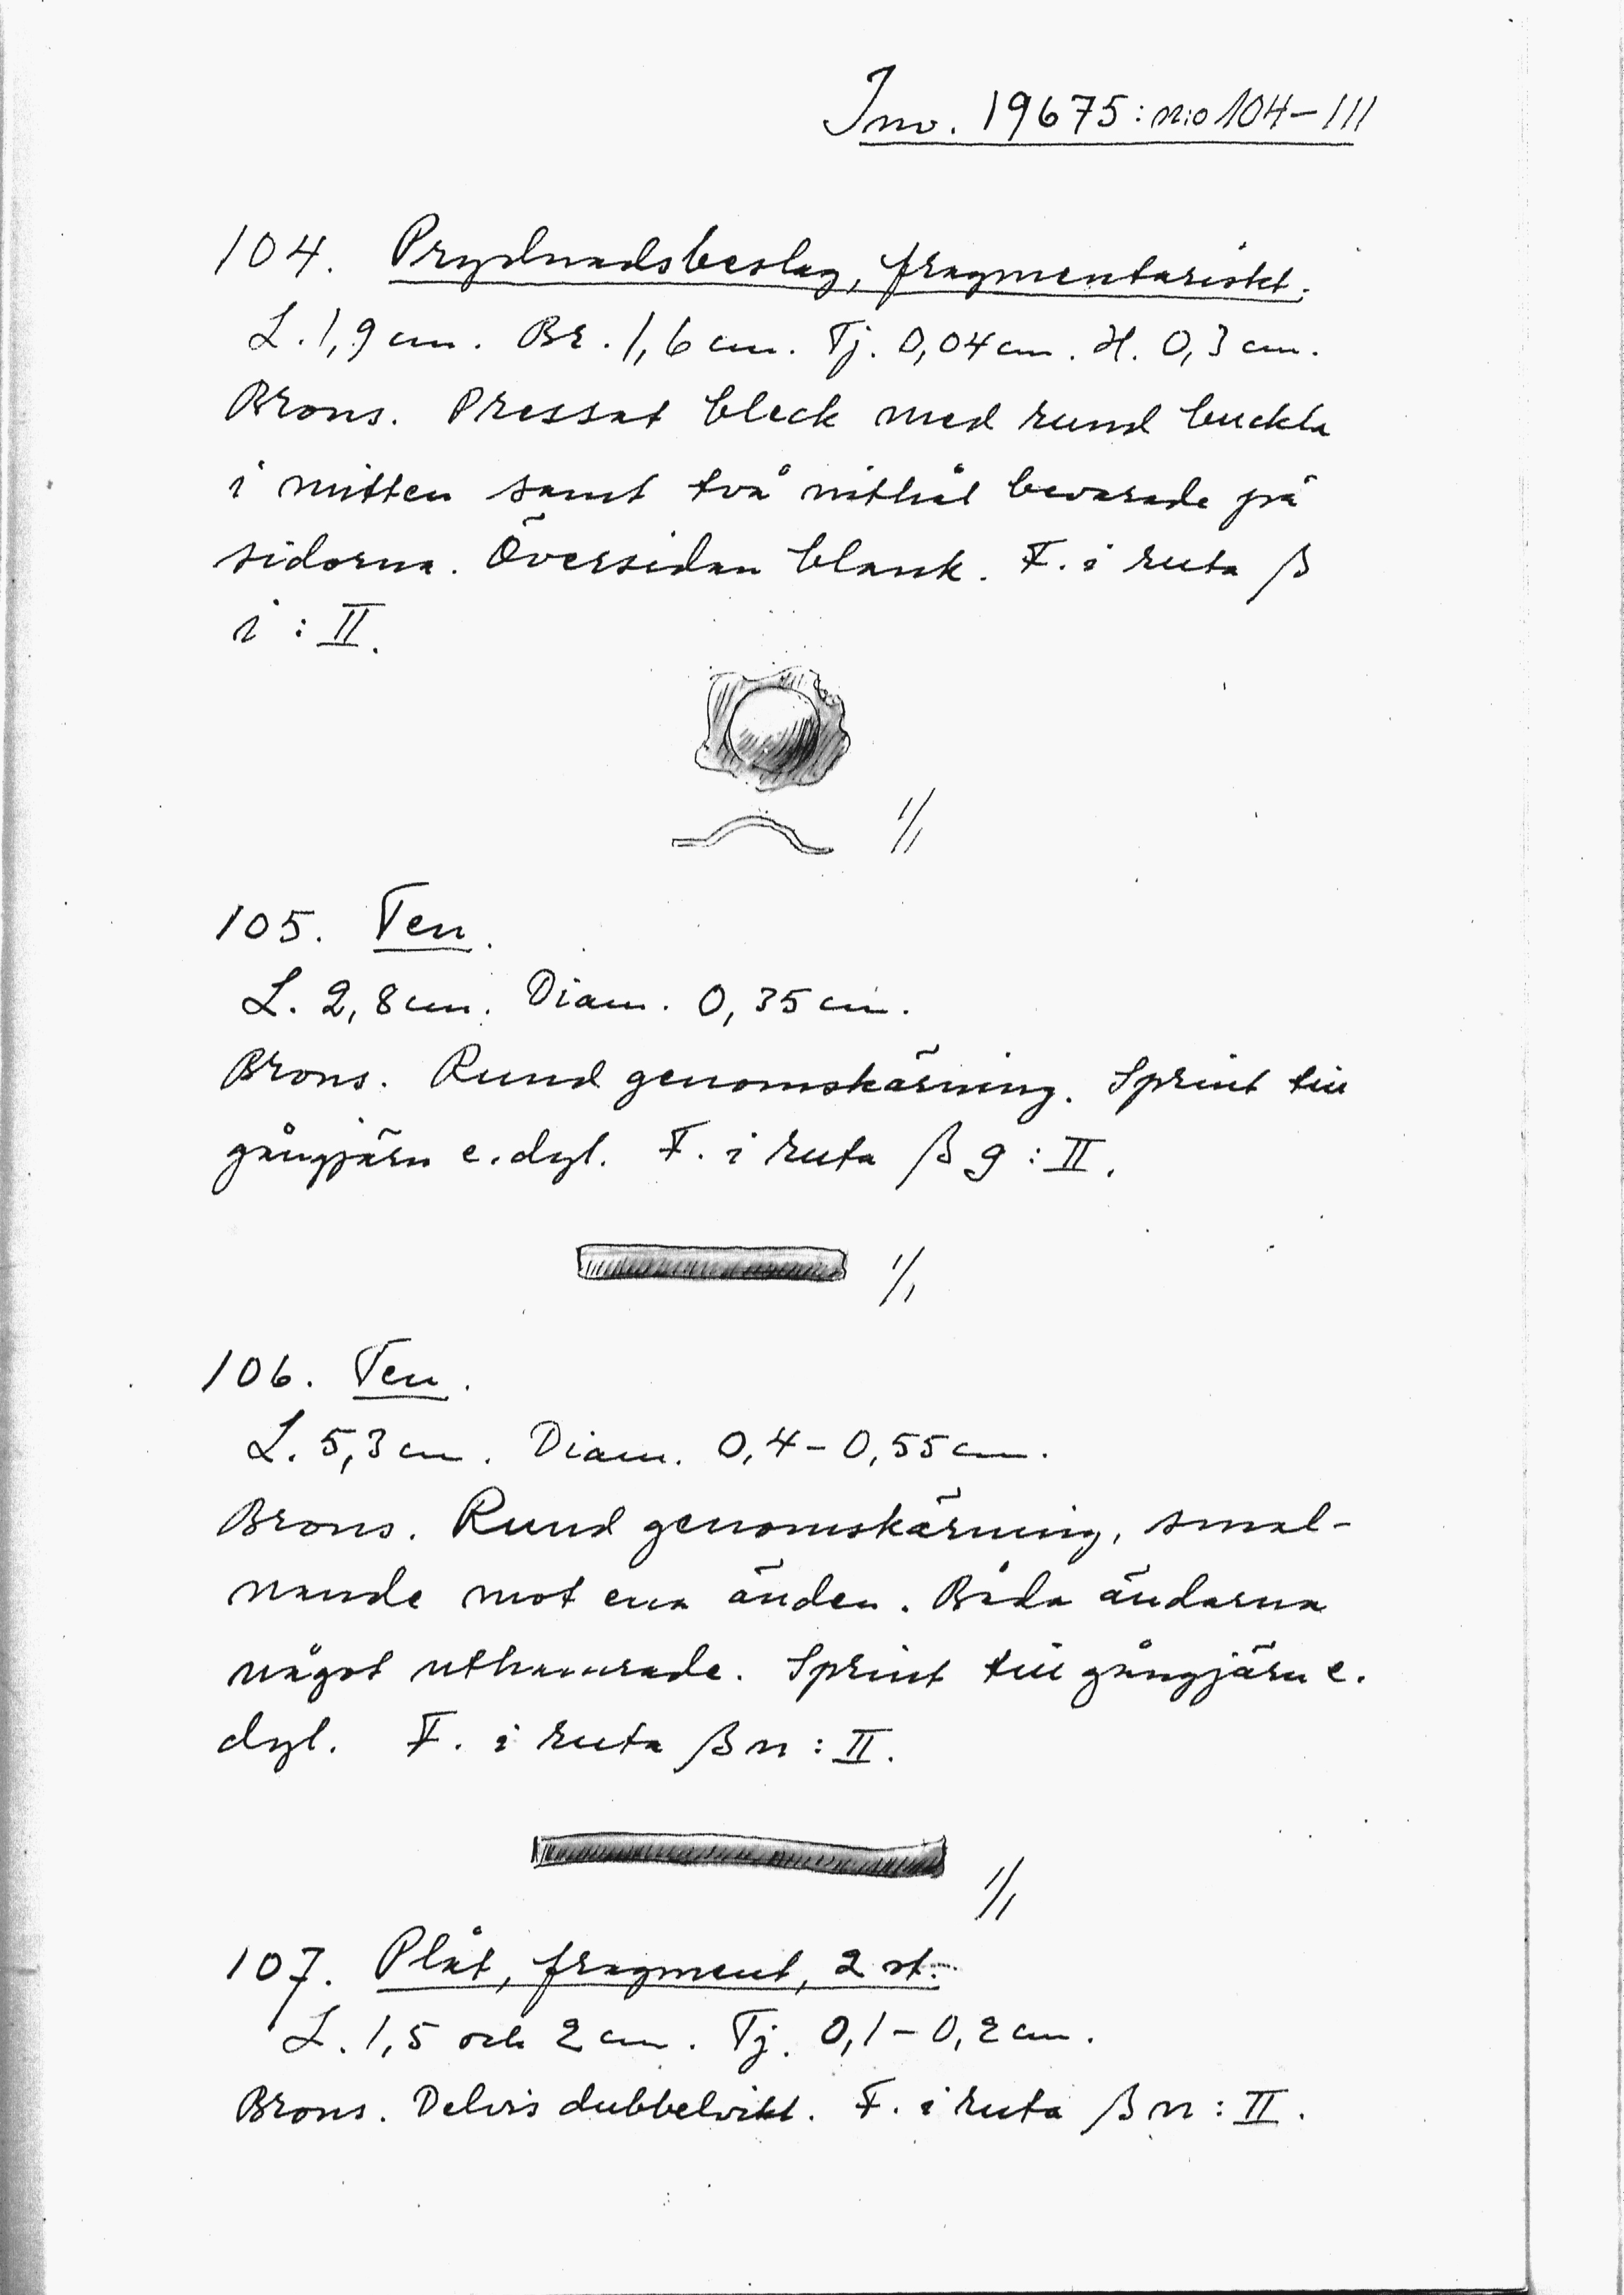 Inv. 19675: n:o 104–111
104. Prydnadsbeslag, fragmentariskt.
L. 1,9 cm. Br. 1,6 cm. Tj. 0,04 cm. H. 0,3 cm.
Brons. Pressat bleck med rund buckla
i mitten samt två nithål bevarade på
sidorna. Översidan blank. F. i ruta β
i : II.
1/1
105. Ten.
L. 2,8 cm. Diam. 0,35 cm.
Brons. Rund genomskärning. Sprint till
gångjärn e. dyl. F. i ruta β g : II.
1/1
106. Ten.
L. 5,3 cm. Diam. 0,4 – 0,55 cm.
Brons. Rund genomskärning, smal-
nande mot ena änden. Båda ändarna
något uthamrade. Sprint till gångjärn e.
dyl. F. i ruta β n : II.
1/1
107. Plåt, fragment, 2 st.
L. 1,5 och 2 cm. Tj. 0,1 – 0,2 cm.
Brons. Delvis dubbelvikt. F. i ruta β n : II.